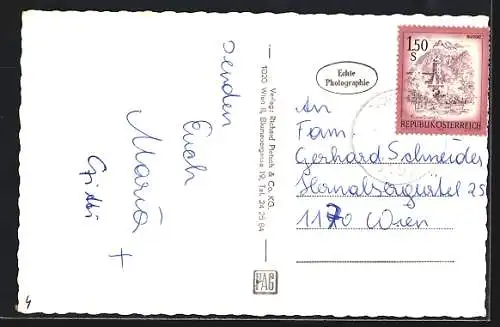 senden
Euch
Maria
+
Gitti
Verlag: Richard Pietsch & Co. KG.
1020 Wien II, Blumauergasse 19, Tel. 24 25 64
PAG
Echte
Photographie
1.50
S
REPUBLIK ÖSTERREICH
An
Fam.
Gerhard Schneider
Hernalsergürtel 25
1170 Wien
4